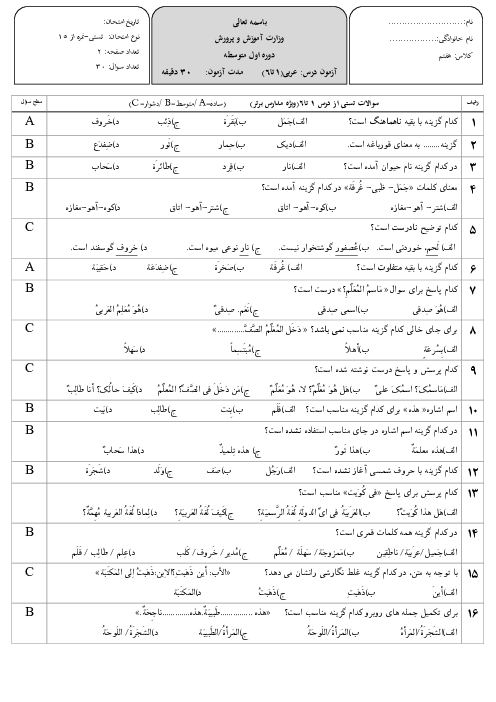 نام:............................
نام خانوادگی:..................
کلاس: هفتم
باسمه تعالی
وزارت آموزش و پرورش
دوره اول متوسطه
آزمون درس: عربی(۱تا۶) مدت آزمون: ۳۰ دقیقه
تاریخ امتحان:
نوع امتحان: تستی-نمره از ۱۵
تعداد صفحه: ۲
تعداد سؤال: ۳۰
ردیف سوالات تستی از درس ۱ تا۶(ویژه مدارس برتر) (ساده=A /متوسط=B /دشوار=C) سطح سؤال
۱ کدام گزینه با بقیه ناهماهنگ است؟ الف)جَمَل ب)بَقَرَة ج)ذِئب د)خَروف A
۲ گزینه........ به معنای قورباغه است. الف)دیک ب)حِمار ج)ثَور د)ضِفدَع B
۳ در کدام گزینه نام حیوان آمده است؟ الف)نار ب)قِرد ج)طائِرَة د)سَحاب B
۴ معنای کلمات «جَمَل- ظَبی- غُرفَة» در کدام گزینه آمده است؟ B
الف)شتر- آهو -مغازه ب)کوه-آهو- اتاق ج)شتر-آهو- اتاق د)کوه-آهو-مغازه
۵ کدام توضیح نادرست است؟ C
الف) لَحم، خوردنی است. ب)عُصفور گوشتخوار نیست. ج) نار نوعی میوه است. د) خروف گوسفند است.
۶ کدام گزینه با بقیه متفاوت است؟ الف) غُرفَة ب)صَخرَة ج)ضِفدَعَة د)حَقیبَة A
۷ کدام پاسخ برای سوال«مَاسمُ المُعَلِّمِ؟» درست است؟ B
الف)هُوَ صَدقی ب)اسمی صِدقی ج)نَعَم. صِدقیٌ د)هُوَ مُعَلِمُ العَرَبیُ
۸ برای جای خالی کدام گزینه مناسب نمی باشد؟ « دَخَلَ المُعَلِّمُ الصَّفَّ.............» C
الف)بِسُرعَةٍ ب)أهلاً ج)مُبتَسِماً د)سَهلاً
۹ کدام پرسش و پاسخ درست نوشته شده است؟ C
الف)مَاسمُکَ؟ اسمُکَ علیٌ ب)هَل هُوَ مُعَلِّمٌ؟ لا، هُوَ مُعَلِّمٌ ج)مَن دَخَلَ فی الصَّفِّ؟ المُعَلِّمُ د)کَیفَ حالُکَ؟ أنا طالِبٌ
۱۰ اسم اشاره« هذه» برای کدام گزینه مناسب است؟ الف)قَلَم ب)بِنت ج)طالِب د)بَیت B
۱۱ در کدام گزینه اسم اشاره در جای مناسب استفاده نشده است؟ B
الف)هذه معلمةٌ ب)هذا ثَورٌ ج) هذه تِلمیذٌ د)هذا سَحابٌ
۱۲ کدام گزینه با حروف شمسی آغاز نشده است؟ الف)رَجُل ب)صَف ج)وَلَد د)شَجَرَة B
۱۳ کدام پرسش برای پاسخ «فی کُوَیت» مناسب است؟
الف)هل هذا کُوَیتٌ؟ ب)العَرَبیَّةُ فی ایِّ الدولَةِ لُغَةُ الرَّسمیَةِ؟ ج)کَیفَ لُغَةُ العَرَبیَةِ؟ د)لِماذا لُغَةُ العَربیه مُهِمَّةٌ؟
۱۴ در کدام گزینه همه کلمات قمری است؟ B
الف)جَمیل /عرَبیَّة/ ناطِقین ب)مَمزوجَة/ سَهلَة / مُعَلِّم ج)مُدیر/ خَروف/ کَلب د)عِلم / طالِب / قَلَم
۱۵ با توجه به متن، در کدام گزینه غلط نگارشی رانشان می دهد؟ «الأَب: أَینَ ذَهَبتَ؟الاِبن:ذَهَبتُ إلی المَکتَبَة» C
الف)أینَ ب)ذَهَبتَ ج)ذَهَبتُ د)المَکتَبَة
۱۶ برای تکمیل جمله های روبرو کدام گزینه مناسب است؟ «هذه ..............طَبیبَةٌ.هذه.............ناجِحَةٌ.» B
الف)الشَّجَرَةُ/المَرأةُ ب)المَرأةُ/اللَوحَةُ ج)المَرأةُ/الطَّبیبَة د)الشَّجَرَةُ/ اللَوحَةُ